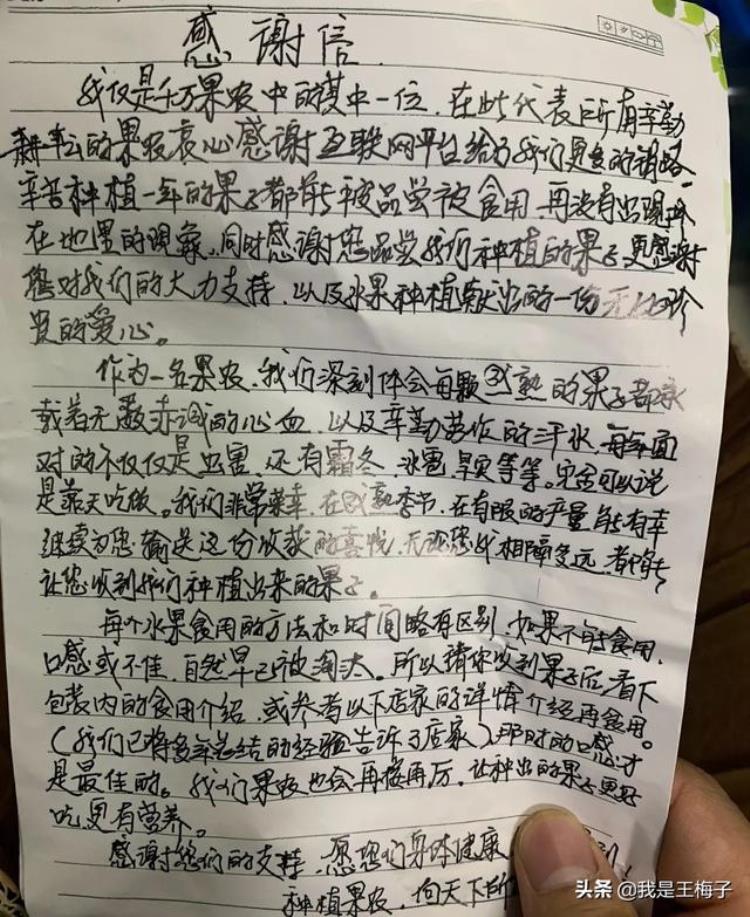 感谢信
我仅是千万果农中的其中一位，在此代表所有辛勤
耕耘的果农衷心感谢互联网平台给了我们更宽的销路
辛苦种植一年的果子都能够被品尝被食用，再没有出现烂
在地里的现象，同时感谢您品尝我们种植的果子，更感谢
您对我们的大力支持，以及水果种植献出的一份无比珍
贵的爱心。
作为一名果农，我们深刻体会每颗成熟的果子都承
载着无数赤诚的心血，以及辛勤劳作的汗水，每年面
对的不仅仅是虫害，还有霜冬、冰雹、旱灾等等。完全可以说
是靠天吃饭。我们非常荣幸，在成熟季节，在有限的产量能有幸
继续为您输送这份收获的喜悦，无论您我相隔多远，都能
让您收到我们种植出来的果子。
每个水果食用的方法和时间略有区别，如果不能食用，
口感或不佳，自然早已被淘汰。所以请你收到果子后，看下
包装内的食用介绍，或参考以下店家的详情介绍再食用。
（我们已将多年总结的经验告诉了店家）那时的口感才
是最佳的。我们果农也会再接再厉，让种出的果子更好
吃，更有营养。
感谢您们的支持，愿您们身体健康
种植果农，向天下所
头条 @我是王梅子